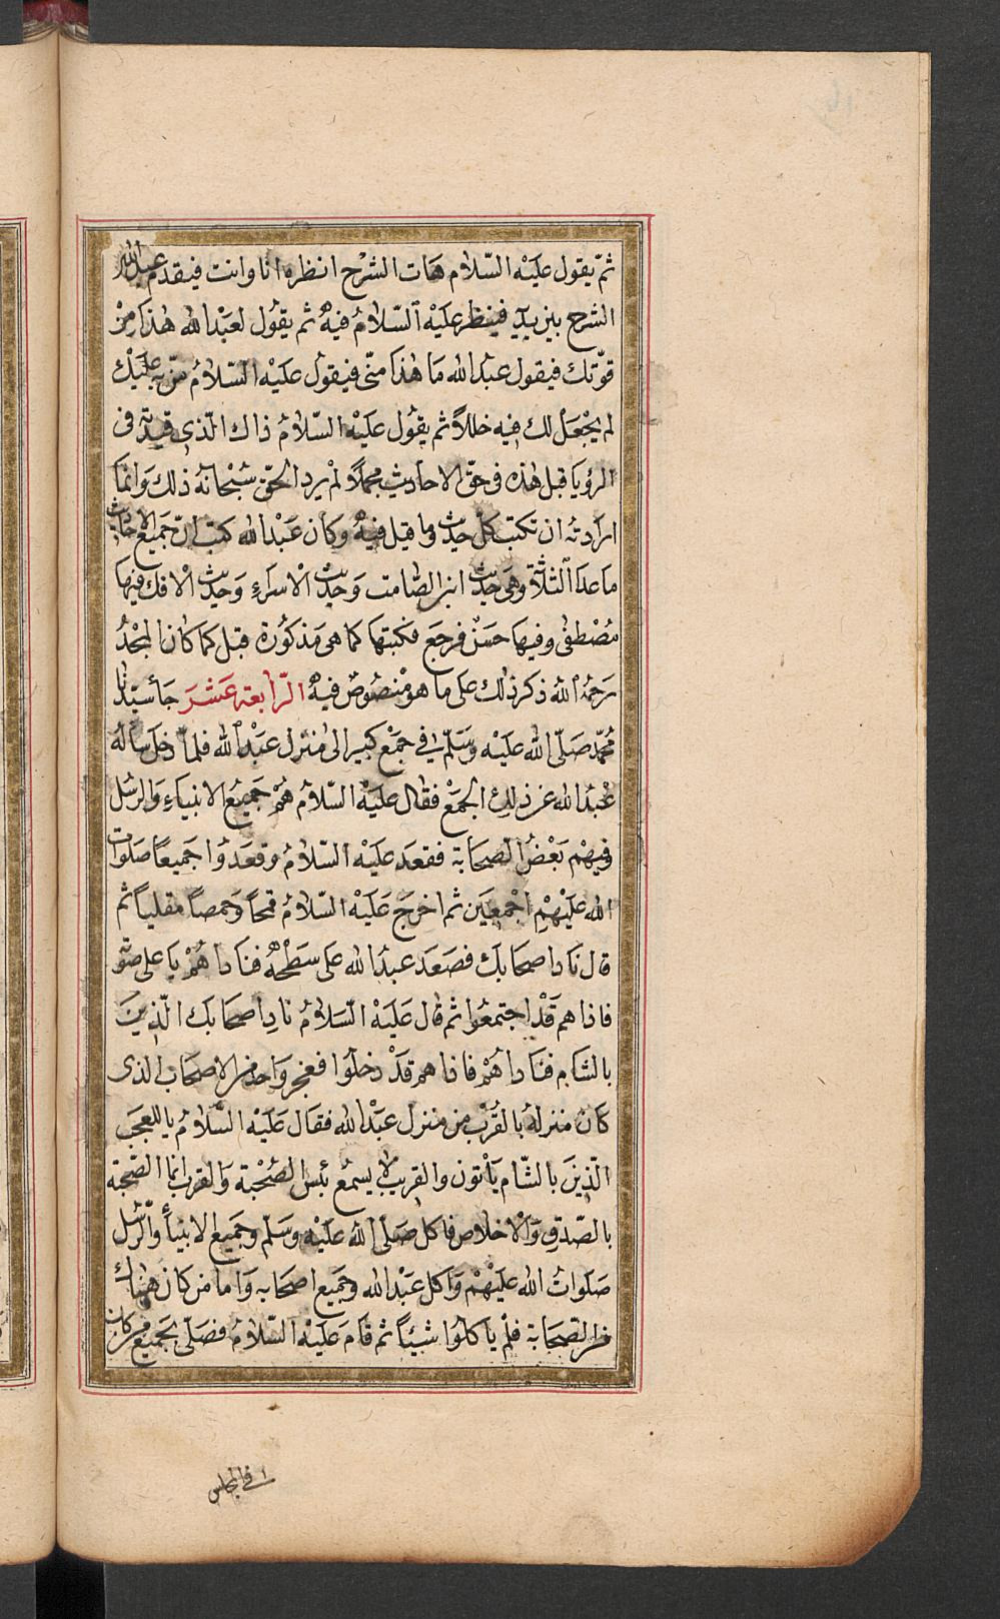 ثم يقول عليه السلام هات الشرح انظره انا وانت فيقدم عبدالله
الشرح بين يديه فينظر عليه السلام فيه ثم يقول لعبدالله هذا من
قوتك فيقول عبدالله ما هذا منى فيقول عليه السلام من به عليك
لم يجعل لك فيه خللا ثم يقول عليه السلام ذاك الذى قيدته فى
الرؤيا قبل هذه فى حق الاحاديث مجملا ولم يرد الحق سبحانه ذلك وانما
ارادته ان تكتب كل حديث وما قيل فيه وكان عبدالله كتب ان جميع الاحاديث
ماعدا الثلاثة وهى حديث ابن الصامت وحديث الاسراء وحديث الافك فيها
مصطفى وفيها حسن فرجع فكتبتها كما هى مذكورة قبل كما كان المجد
رحمه الله ذكر ذلك على ما هو منصوص فيه الرابعة عشر جا سيدنا
محمد صلى الله عليه وسلم فى جمع كبير الى منزل عبدالله فلما دخل ساله
عبدالله عن ذلك الجمع فقال عليه السلام هم جميع الانبياء والرسل
وفيهم بعض الصحابة فقعد عليه السلام وقعدوا جميعا صلوات
الله عليهم اجمعين ثم اخرج عليه السلام قمحا وحمصا مقليا ثم
قال ناد اصحابك فصعد عبدالله على سطحه فناداهم يا على صوته
فاذا هم قد اجتمعوا ثم قال عليه السلام ناد اصحابك الذين
بالشام فناداهم فاذا هم قد دخلوا فعجز واحد من الاصحاب الذى
كان منزله بالقرب من منزل عبدالله فقال عليه السلام ياللعجب
الذين بالشام ياتون والقريب لا يسمع بئس الصحبة والقرب انما الصحبة
بالصدق والاخلاص فاكل صلى الله عليه وسلم وجميع الانبيأ والرسل
صلوات الله عليهم واكل عبدالله وجميع اصحابه واما من كان هناك
من الصحابة فلم ياكلوا شيئا ثم قام عليه السلام فصلى بجميع من كان
فى المجلس